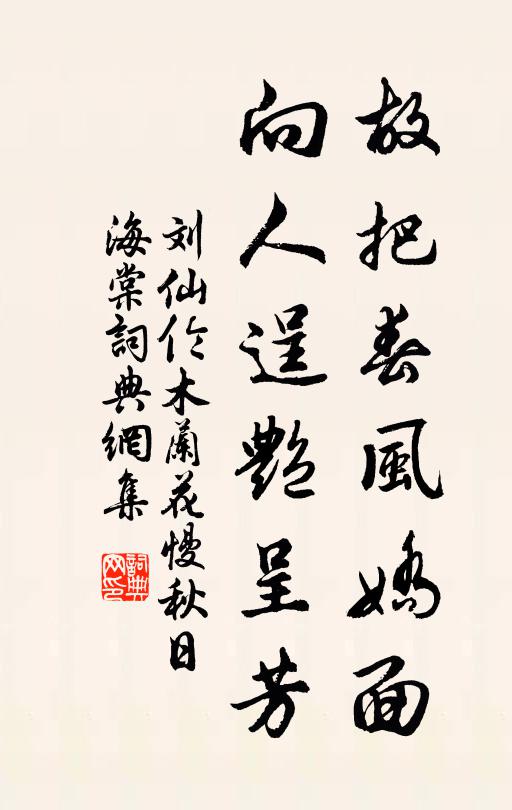 故把春風嬌面
向人逞艷呈芳
刘仙伦木蘭花慢秋日
海棠詞典網集
詞典
网印